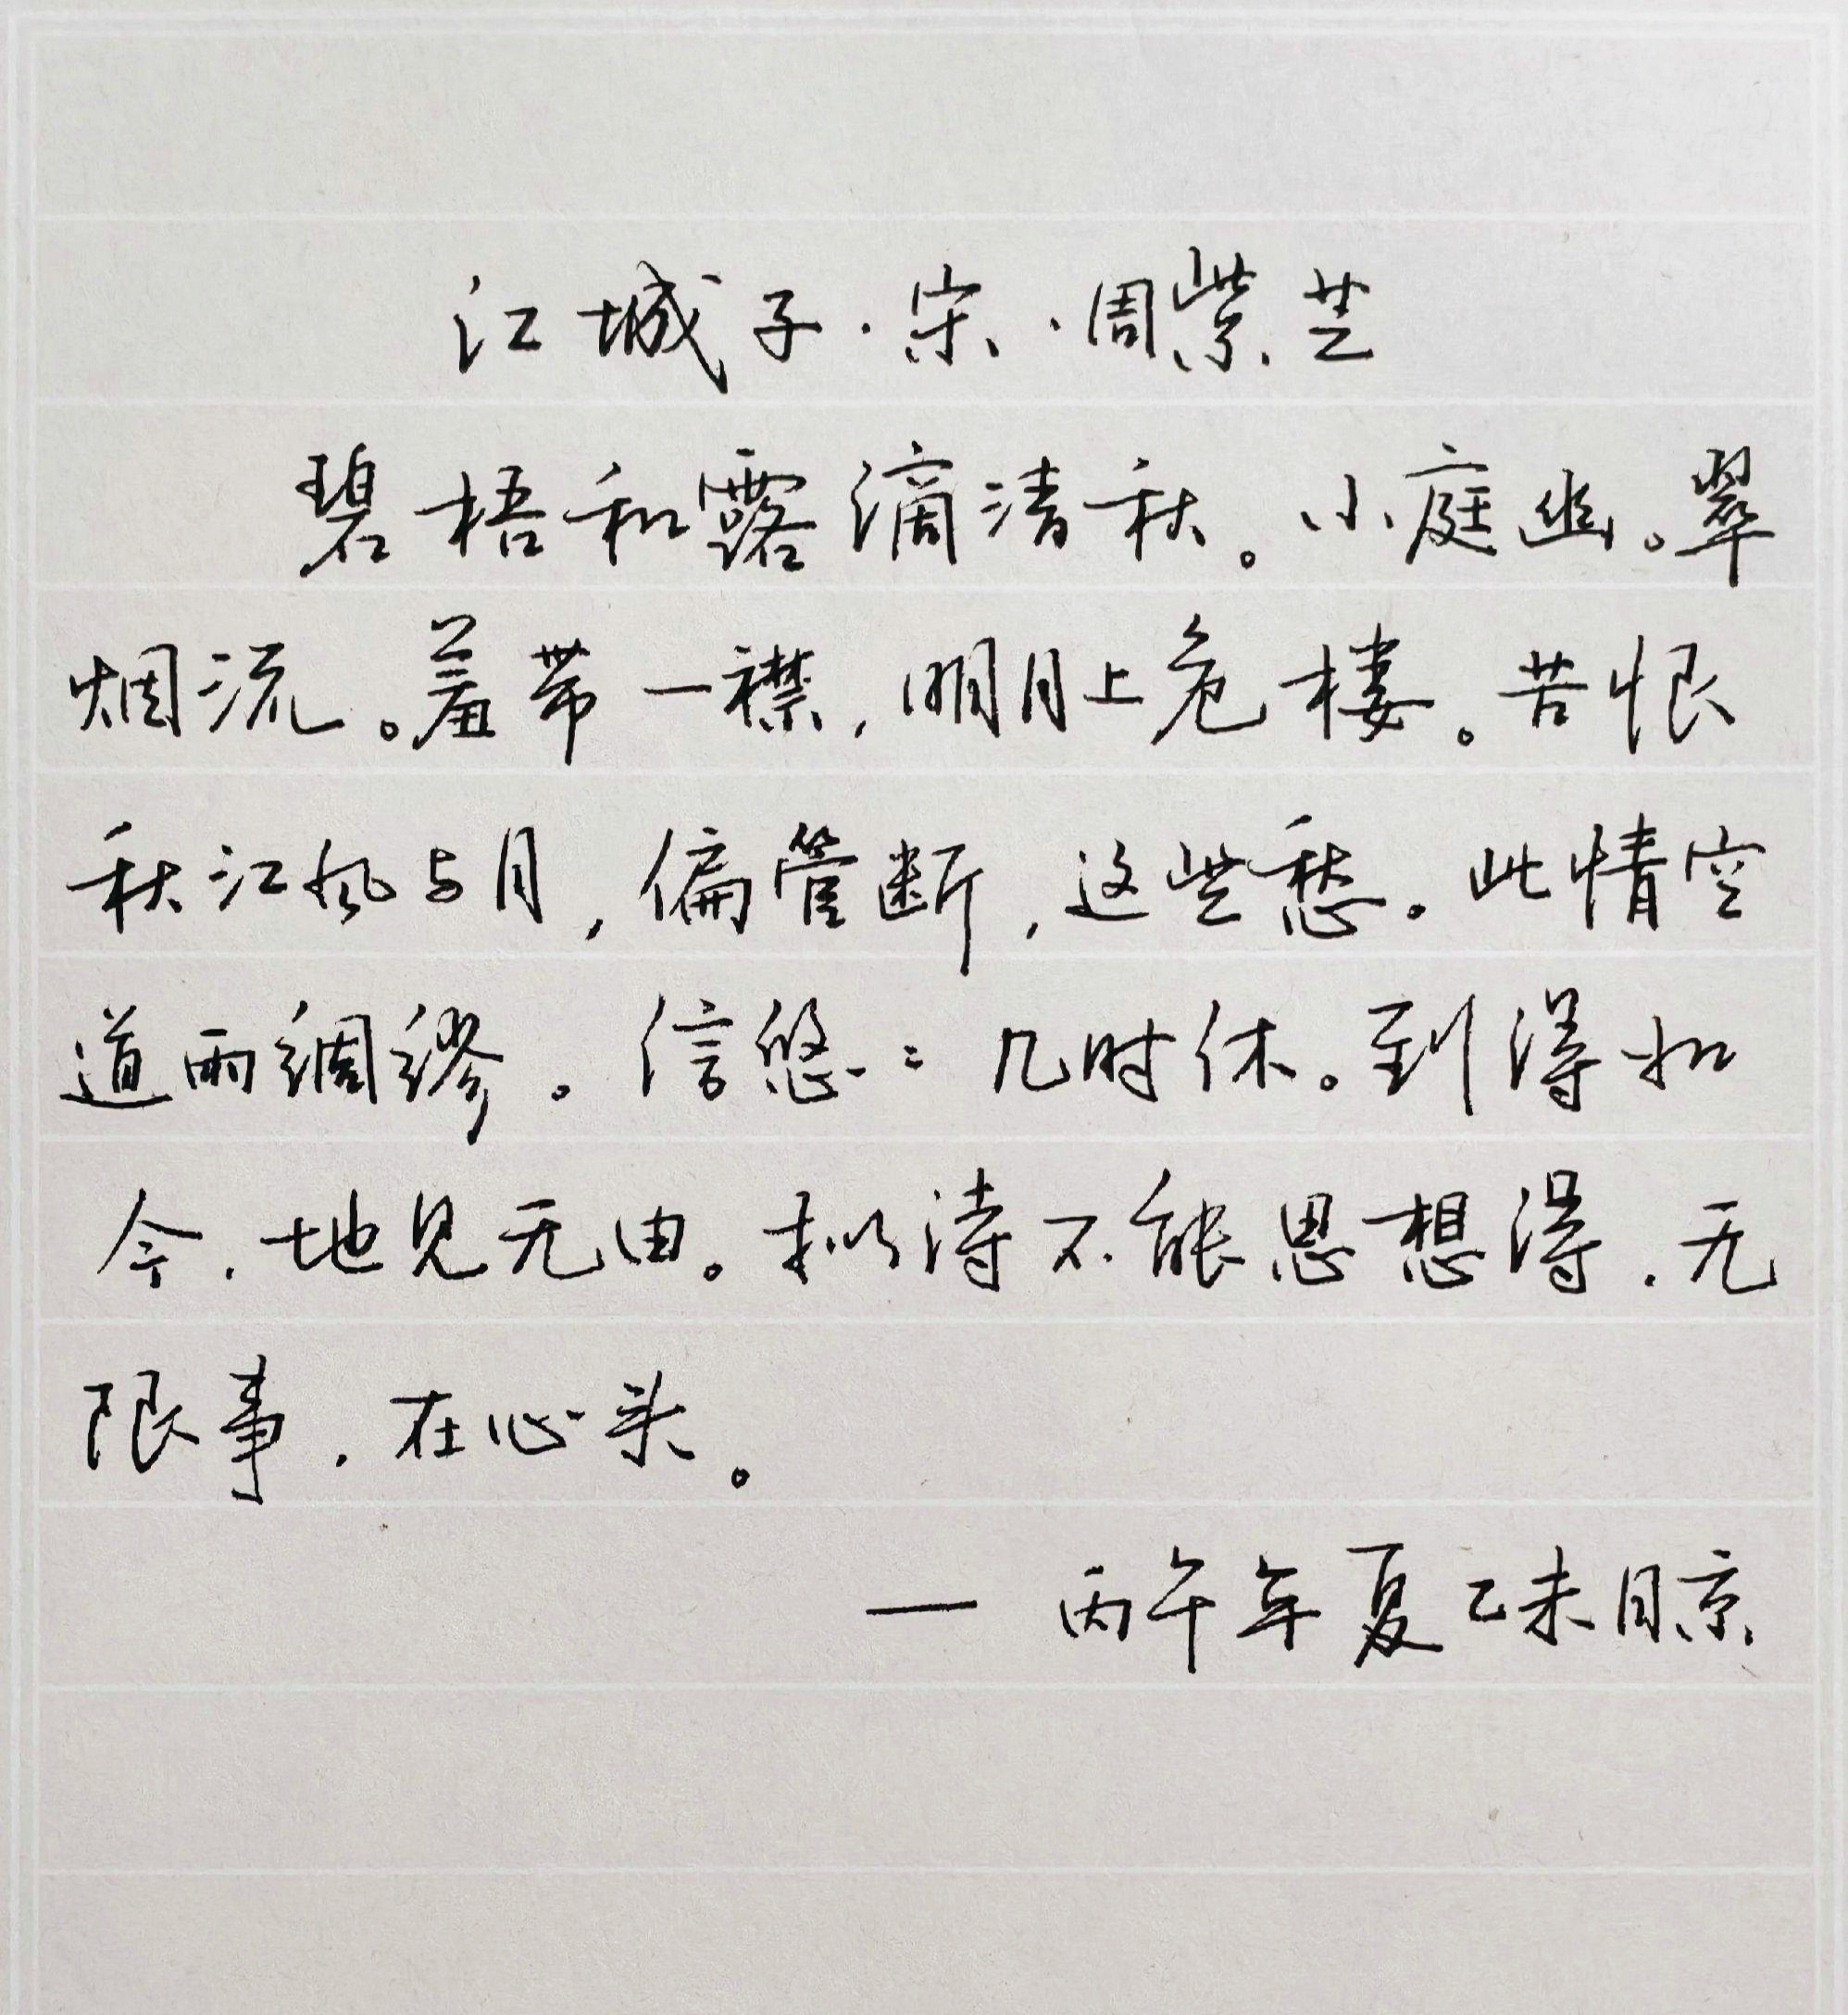 江城子·宋·周紫芝
碧梧和露滴清秋。小庭幽。翠
烟流。羞带一襟,明月上危楼。苦恨
秋江风与月,偏管断,这些愁。此情空
道两绸缪。信悠〻几时休。到得如
今,地见无由。拟待不能思想得,无
限事,在心头。
— 丙午年夏乙未月京